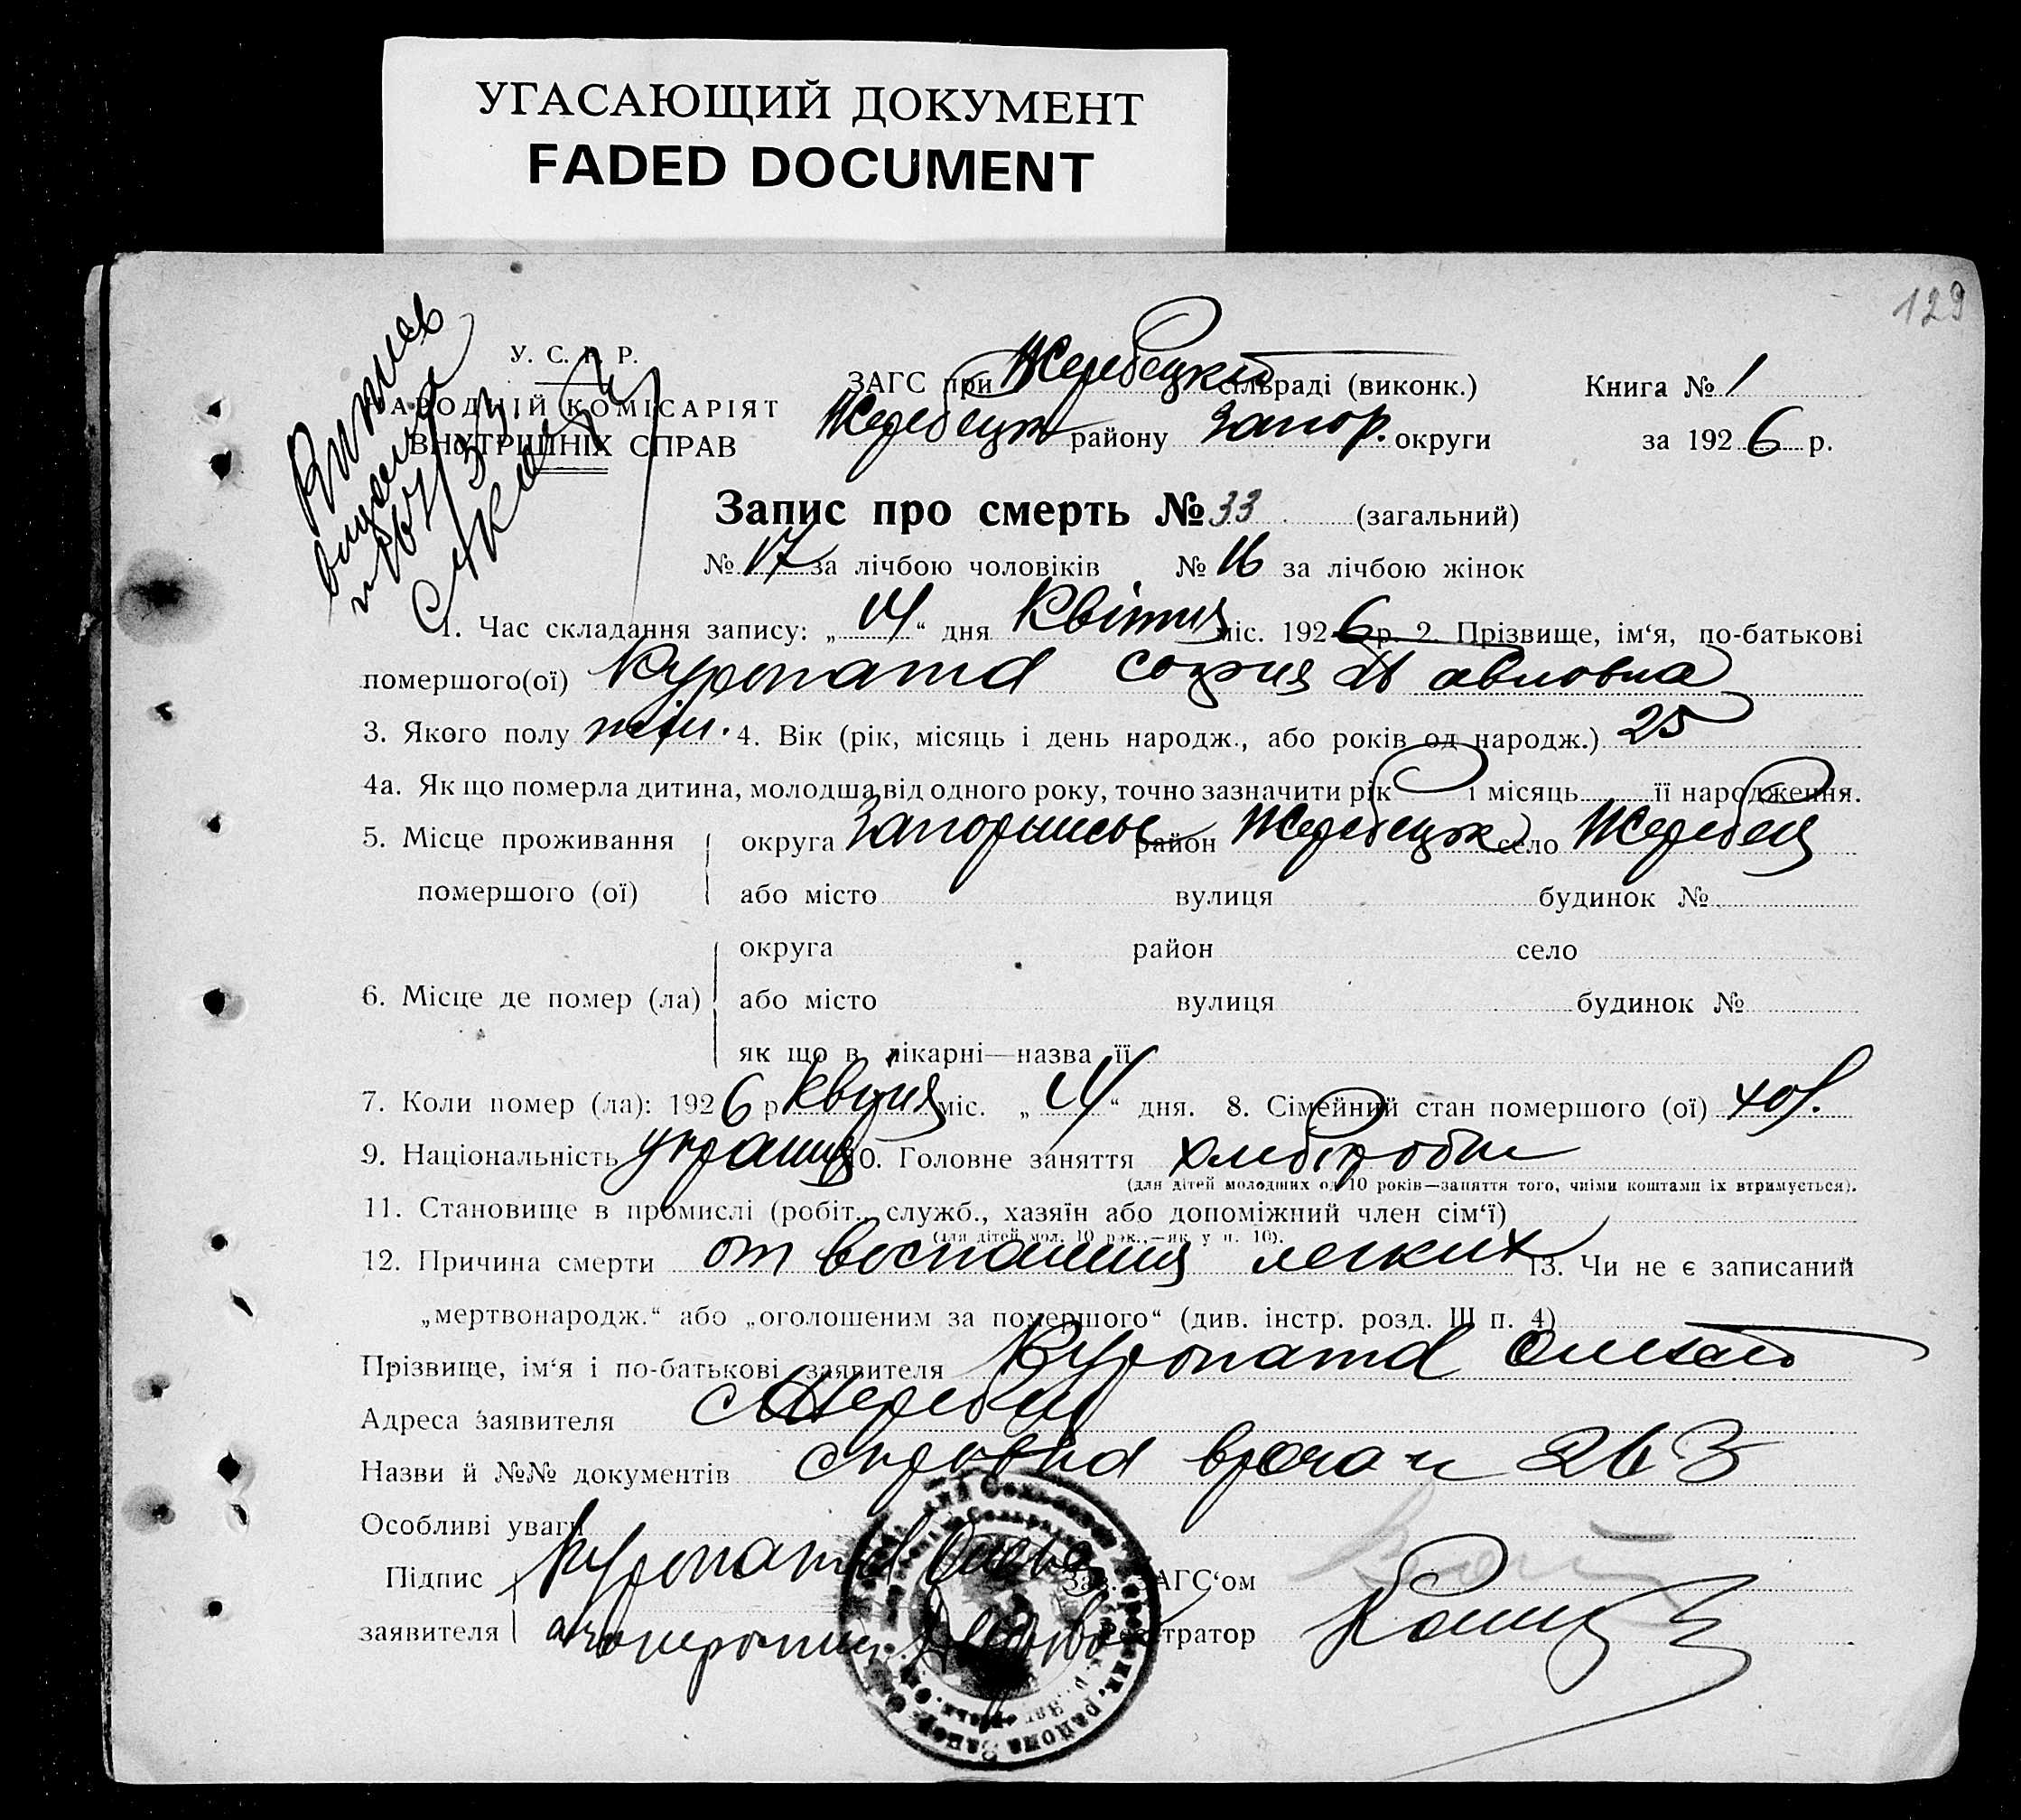 УГАСАЮЩИЙ ДОКУМЕНТ
FADED DOCUMENT
129
У. С. Р. Р.
НАРОДНІЙ КОМІСАРІЯТ
ВНУТРІШНІХ СПРАВ
ЗАГС при Жеребецкій сільраді (виконк.) Книга № 1
Жеребецьк району Запор. округи за 1926 р.
Запис про смерть № 33 (загальний)
№ 17 за лічбою чоловіків № 16 за лічбою жінок
1. Час складання запису: „ “ дня Квітня міс. 1926 р. 2. Прізвище, ім‘я, по-батькові
помершого(ої) Куропата София Павловна
3. Якого полу жін. 4. Вік (рік, місяць і день народж., або років од народж.) 25
4а. Як що померла дитина, молодша від одного року, точно зазначити рік і місяць її народження.
5. Місце проживання округа Запоржськ район Жеребецьк село Жеребец
помершого (ої) або місто вулиця будинок №
округа район село
6. Місце де помер (ла) або місто вулиця будинок №
як що в лікарні—назва її
7. Коли помер (ла): 1926 р. Квітня міс. „ “ дня. 8. Сімейний стан помершого (ої)
9. Національність україн 10. Головне заняття хлебіробн
(для дітей молодших од 10 років—заняття того, чиїми коштами їх втримується).
11. Становище в промислі (робіт., служб., хазяїн або допоміжний член сім‘ї)
(для дітей мол. 10 рок.,—як у п. 10).
12. Причина смерти от воспаления легких 13. Чи не є записаний
„мертвонародж.“ або „оголошеним за помершого“ (див. інстр. розд. III п. 4)
Прізвище, ім‘я і по-батькові заявителя Куропата
Адреса заявителя с Жеребец
Назви й №№ документів справка врача н 263
Особливі уваги
Підпис Куропата Зав. ЗАГС‘ом
заявителя Реєстратор